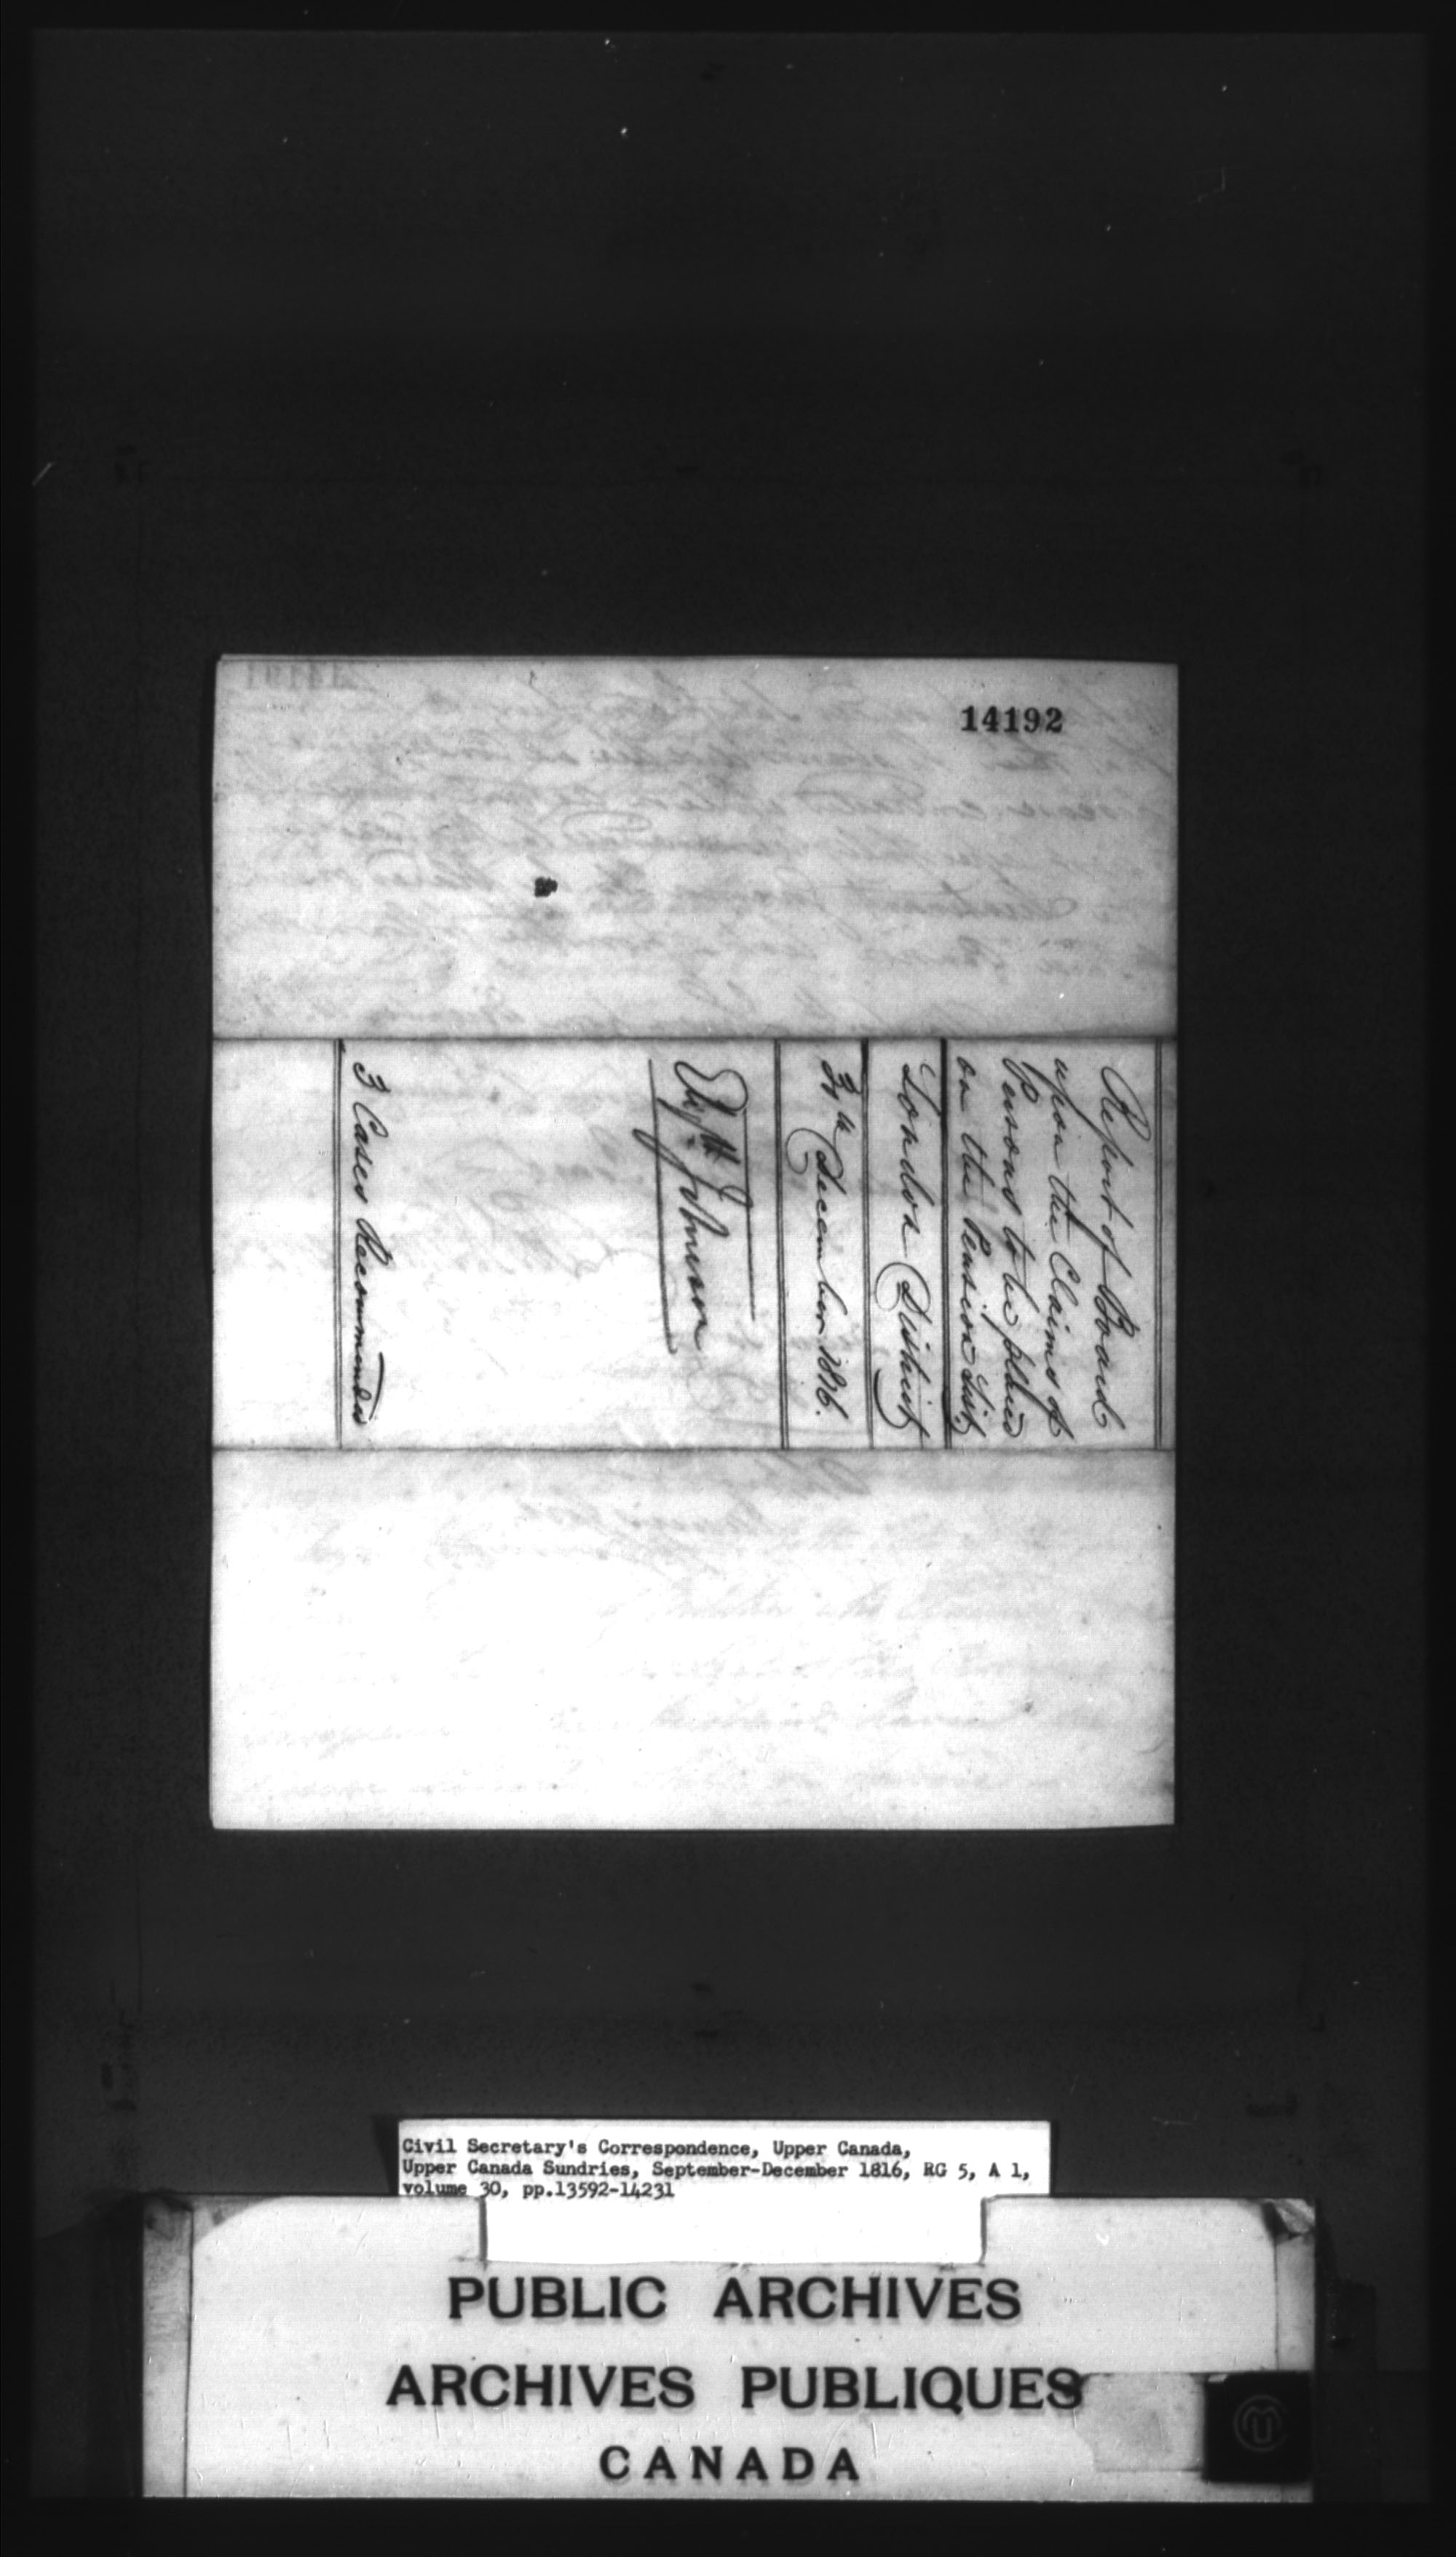 14192
Report of Board
upon the Claims of
Persons to be placed
on the Pension List
London District
December 1816.
Johnson
3 Cases Recommended
Civil Secretary's Correspondence, Upper Canada,
Upper Canada Sundries, September-December 1816, RG 5, A 1,
volume 30, pp.13592-14231
PUBLIC ARCHIVES
ARCHIVES PUBLIQUES
CANADA